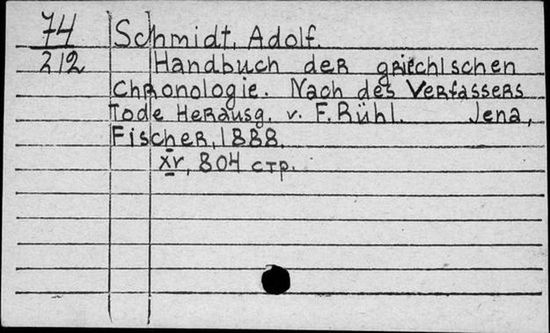 74 Schmidt, Adolf.
212 Handbuch der griechischen
Chronologie. Nach des Verfassers
Tode Herausg. v. F. Rühl. Jena,
Fischer, 1888.
XV, 804 стр.